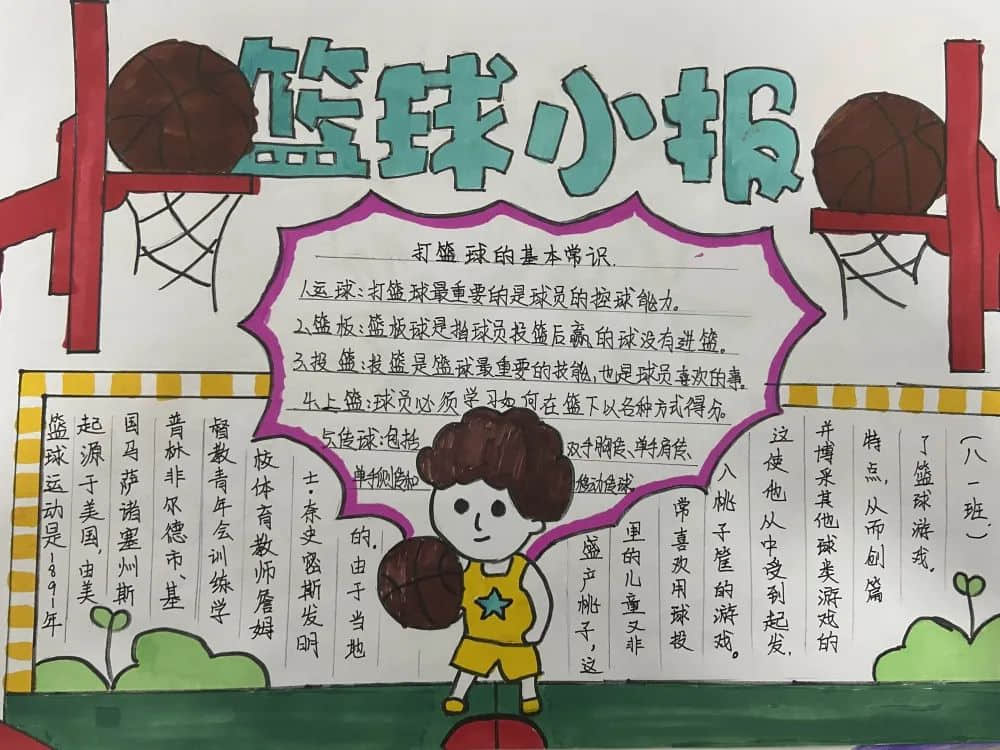 篮球小报
打篮球的基本常识
1.运球:打篮球最重要的是球员的控球能力。
2.篮板:篮板球是指球员投篮后赢的球没有进篮。
3.投篮:投篮是篮球最重要的技能,也是球员喜欢的事。
4.上篮:球员必须学习如何在篮下以各种方式得分。
5.传球:包括双手胸传、单手肩传、
单手侧传和移动传球。
篮球运动是1891年
起源于美国,由美
国马萨诸塞州斯
普林非尔德市、基
督教青年会训练学
校体育教师詹姆
士·奈史密斯发明
的.由于当地
盛产桃子,这
里的儿童又非
常喜欢用球投
入桃子筐的游戏。
这使他从中受到起发,
并博采其他球类游戏的
特点,从而创篇
了篮球游戏.
(八一班:)